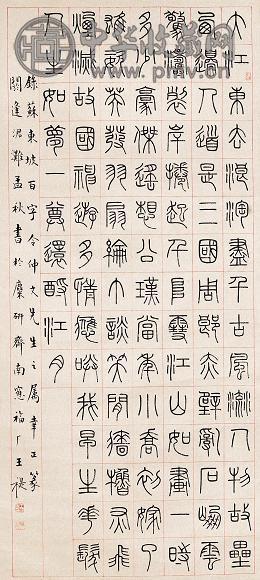 大江東去浪淘盡千古風流人物故壘
西邊人道是三國周郎赤壁亂石崩雲
驚濤裂岸捲起千堆雪江山如畫一時
多少豪傑遙想公瑾當年小喬初嫁了
雄姿英發羽扇綸巾談笑間檣櫓灰飛
煙滅故國神遊多情應笑我早生華髮
人生如夢一尊還酹江月
錄蘇東坡百字令仲文先生之屬幸正篆
閼逢涒灘孟秋書於麋研齋南窗福厂王禔
中华收藏网